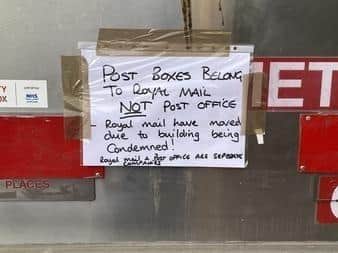 POST BOXES BELONG
TO ROYAL MAIL
NOT POST OFFICE
- Royal mail have moved
due to building being
Condemned!
Royal mail & Post OFFICE ARE SEPERATE
COMPANIES
TY
OX
NHS
MET
PLACES